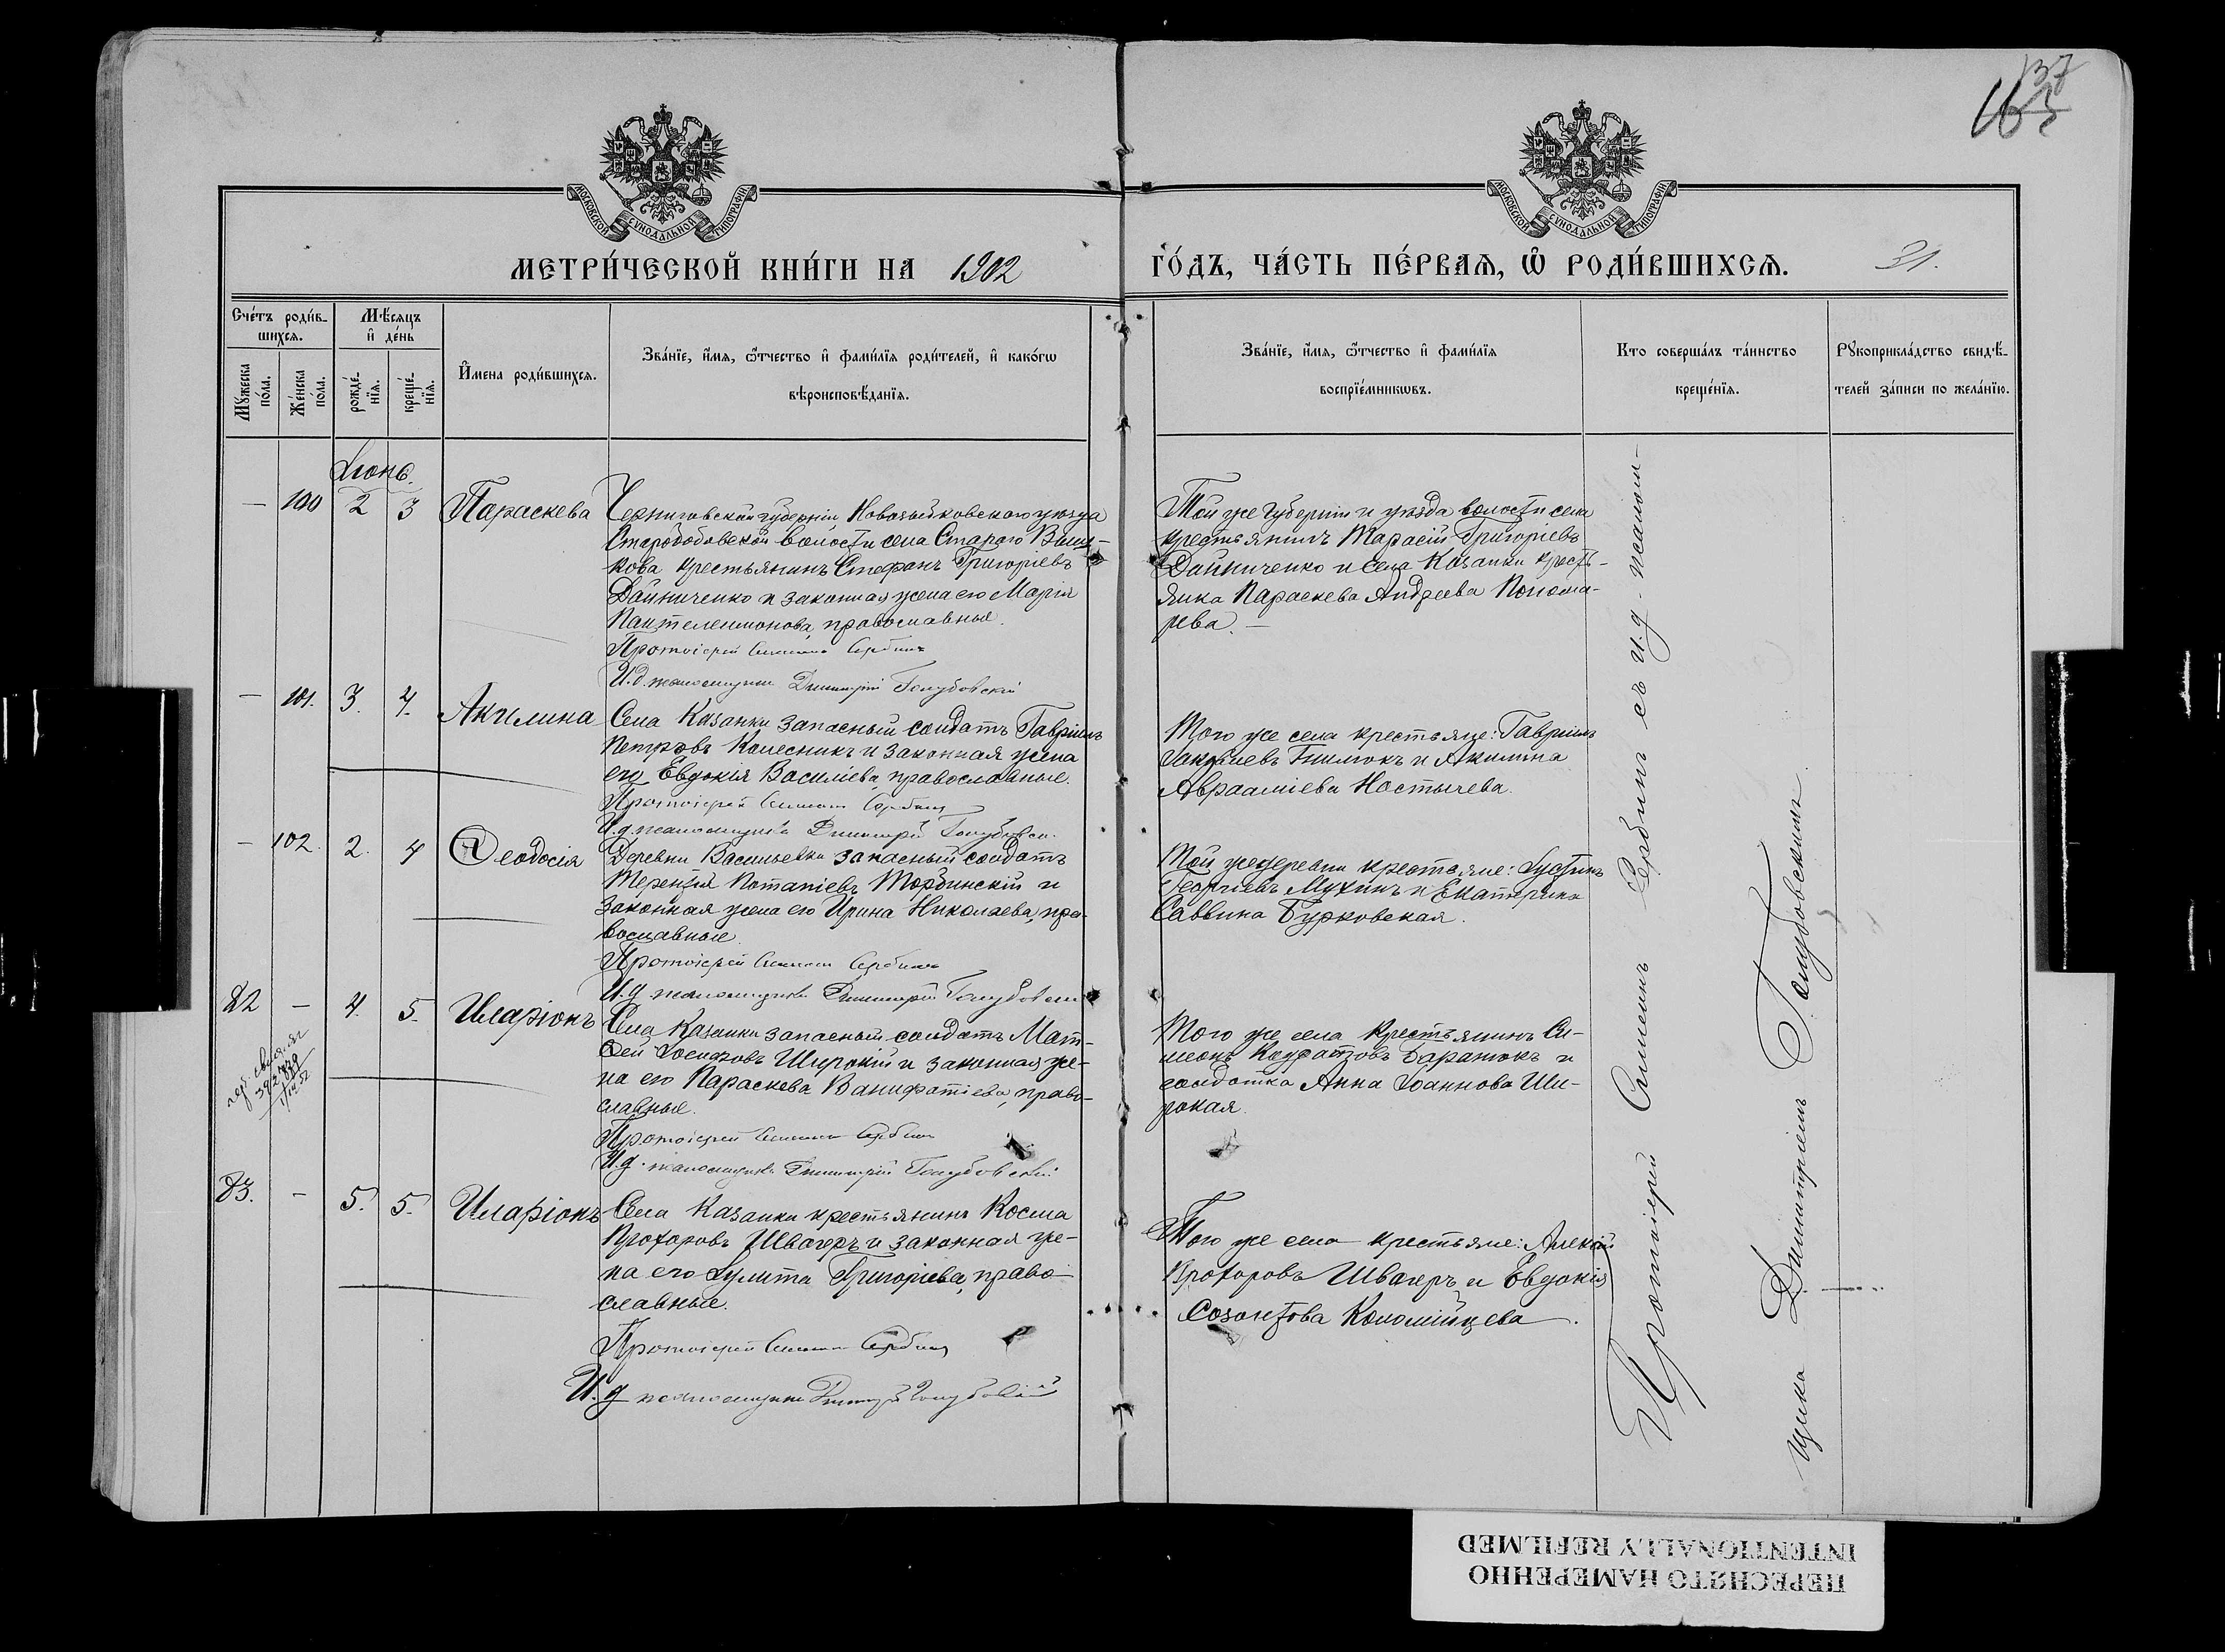 137
МОСКОВСКОЙ СѴНОДАЛЬНОЙ ТИПОГРАФІИ
МОСКОВСКОЙ СѴНОДАЛЬНОЙ ТИПОГРАФІИ
МЕТРИ́ЧЕСКОЙ КНИ́ГИ НА 1902
ГО́ДЪ, ЧА́СТЬ ПЕ́РВАѦ, Ѽ РОДИ́ВШИХСѦ. 31.
Сче́тъ роди́в-
шихсѧ.
Мꙋжеска
по́ла.
Же́нска
по́ла.
Мѣ́сѧцъ
и҆ де́нь
рожде́-
нїѧ.
креще́-
нїѧ.
И҆мена роди́вшихсѧ.
Зва́нїе, и҆́мѧ, ѻ҆́тчество и҆ фами́лїѧ роди́телей, и҆ како́гѡ
вѣроисповѣ́данїѧ.
Зва́нїе, и҆́мѧ, ѻ҆́тчество и҆ фами́лїѧ
воспрїе́мникѡвъ.
Кто соверша́лъ та́инство
креще́нїѧ.
Рꙋкоприкла́дство свидѣ́-
телей за́писи по жела́нїю.
Іюнь.
— 100 2 3 Параскева
Черниговской губерніи, Новозыбковскаго уѣзда
волости села Стараго Выш-
кова крестьянинъ Стефанъ Григоріевъ
Дайниченко и законная жена его Марія
Пантелеимонова, православные.
Протоіерей Симеонъ Сербинъ
И.д. псаломщика Димитрій Голубовскій
Той же губерніи и уѣзда волости села
крестьянинъ Тарасій Григоріевъ
Дайниченко и села Казанки кресть-
янка Параскева Андреева Понома-
рева. —
— 101. 3. 4. Акилина
Села Казанки запасный солдатъ Гавріилъ
Петровъ Колесникъ и законная жена
его Евдокія Василіева, православные.
Протоіерей Симеонъ Сербинъ
И.д. псаломщика Димитрій Голубовскій
Того же села крестьяне: Гавріилъ
и Акилина
Авраамієва Костычева.
— 102. 2. 4 Ѳеодосія
Деревни Васильевки запасный солдатъ
Терентій Потапіевъ Торбинскій и
законная жена его Ирина Николаева, пра-
вославные.
Протоіерей Симеонъ Сербинъ
И.д. псаломщика Димитрій Голубовскій
Той же деревни крестьяне: Іустинъ
Георгіевъ Мухинъ и Екатерина
Саввина Бурковская.
82 — 4. 5. Иларіонъ
Села Казанки запасный солдатъ Мат-
ѳей Іосифовъ Широкій и законная же-
на его Параскева Ванифатіева, право-
славные.
Протоіерей Симеонъ Сербинъ
И.д. псаломщика Димитрій Голубовскій
Того же села крестьянинъ Си-
меонъ Кондратовъ Баранюкъ и
солдатка Анна Іоаннова Ши-
рокая.
83. — 5. 5. Иларіонъ
Села Казанки крестьянинъ Косма
Прохоровъ Швагеръ и законная же-
на его Іулита Григоріева, право-
славные.
Протоіерей Симеонъ Сербинъ
И.д. псаломщика Димитрій Голубовскій
Того же села крестьяне: Алексій
Прохоровъ Швагеръ и Евдокія
Созонтова Коломійцева.
Протоіерей Симеонъ Сербинъ съ и.д. псалом-
щика Димитріемъ Голубовскимъ.
ПЕРЕСНЯТО НАМЕРЕННО
INTENTIONALLY REFILMED